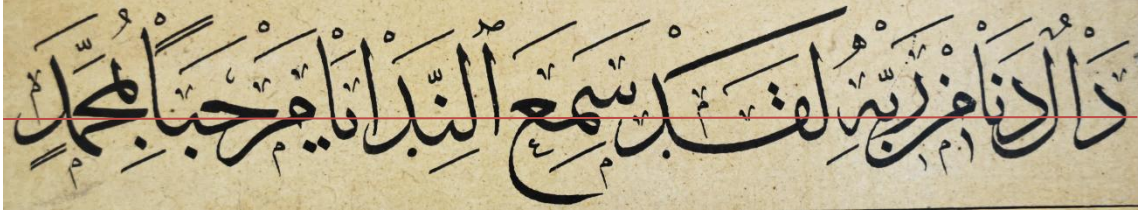 دَالٌ دَنَا مِنْ رَبِّهِ لَقَدْ سَمِعَ ٱلنِّدَا يَا مَرْحَبًا بِمُحَمَّدٍ